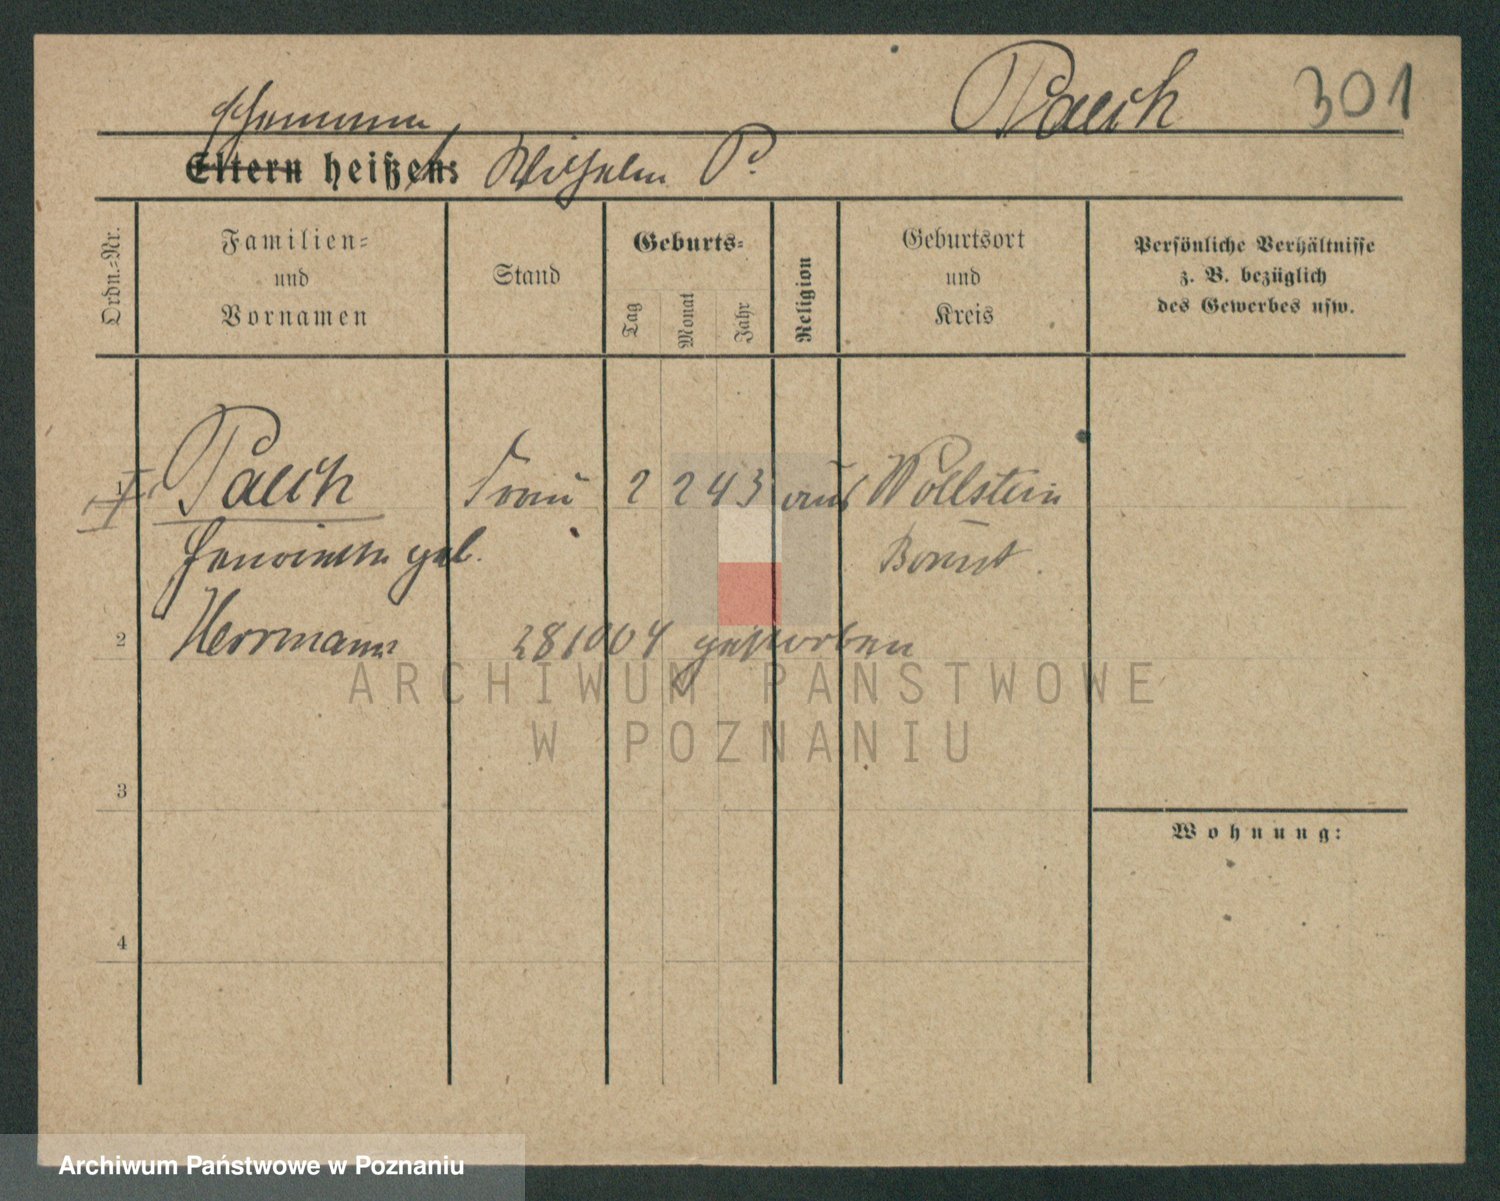 Paech 301
Ehemann
Eltern heißen: Wilhelm P.
Ordn.-Nr.
Familien-
und
Vornamen
Stand
Geburts-
Tag
Monat
Jahr
Religion
Geburtsort
und
Kreis
Persönliche Verhältnisse
z. B. bezüglich
des Gewerbes usw.
Paech Frau 2 2 43 Wollstein
geb. Bomst
2 Herrmann 281004 gestorben
ARCHIWUM PAŃSTWOWE
W POZNANIU
3
Wohnung:
4
Archiwum Państwowe w Poznaniu